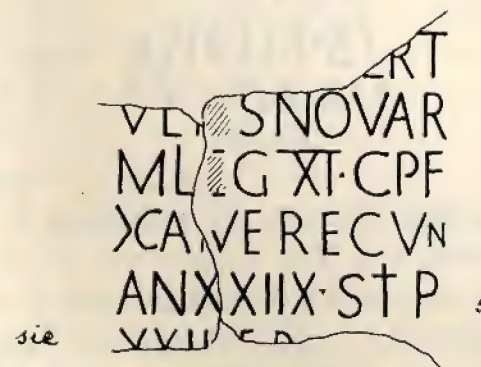 ERT
VL SNOVAR
M LEG XI·CPF
ϽCAI VERECVN
ANXXIIX·STP
sie